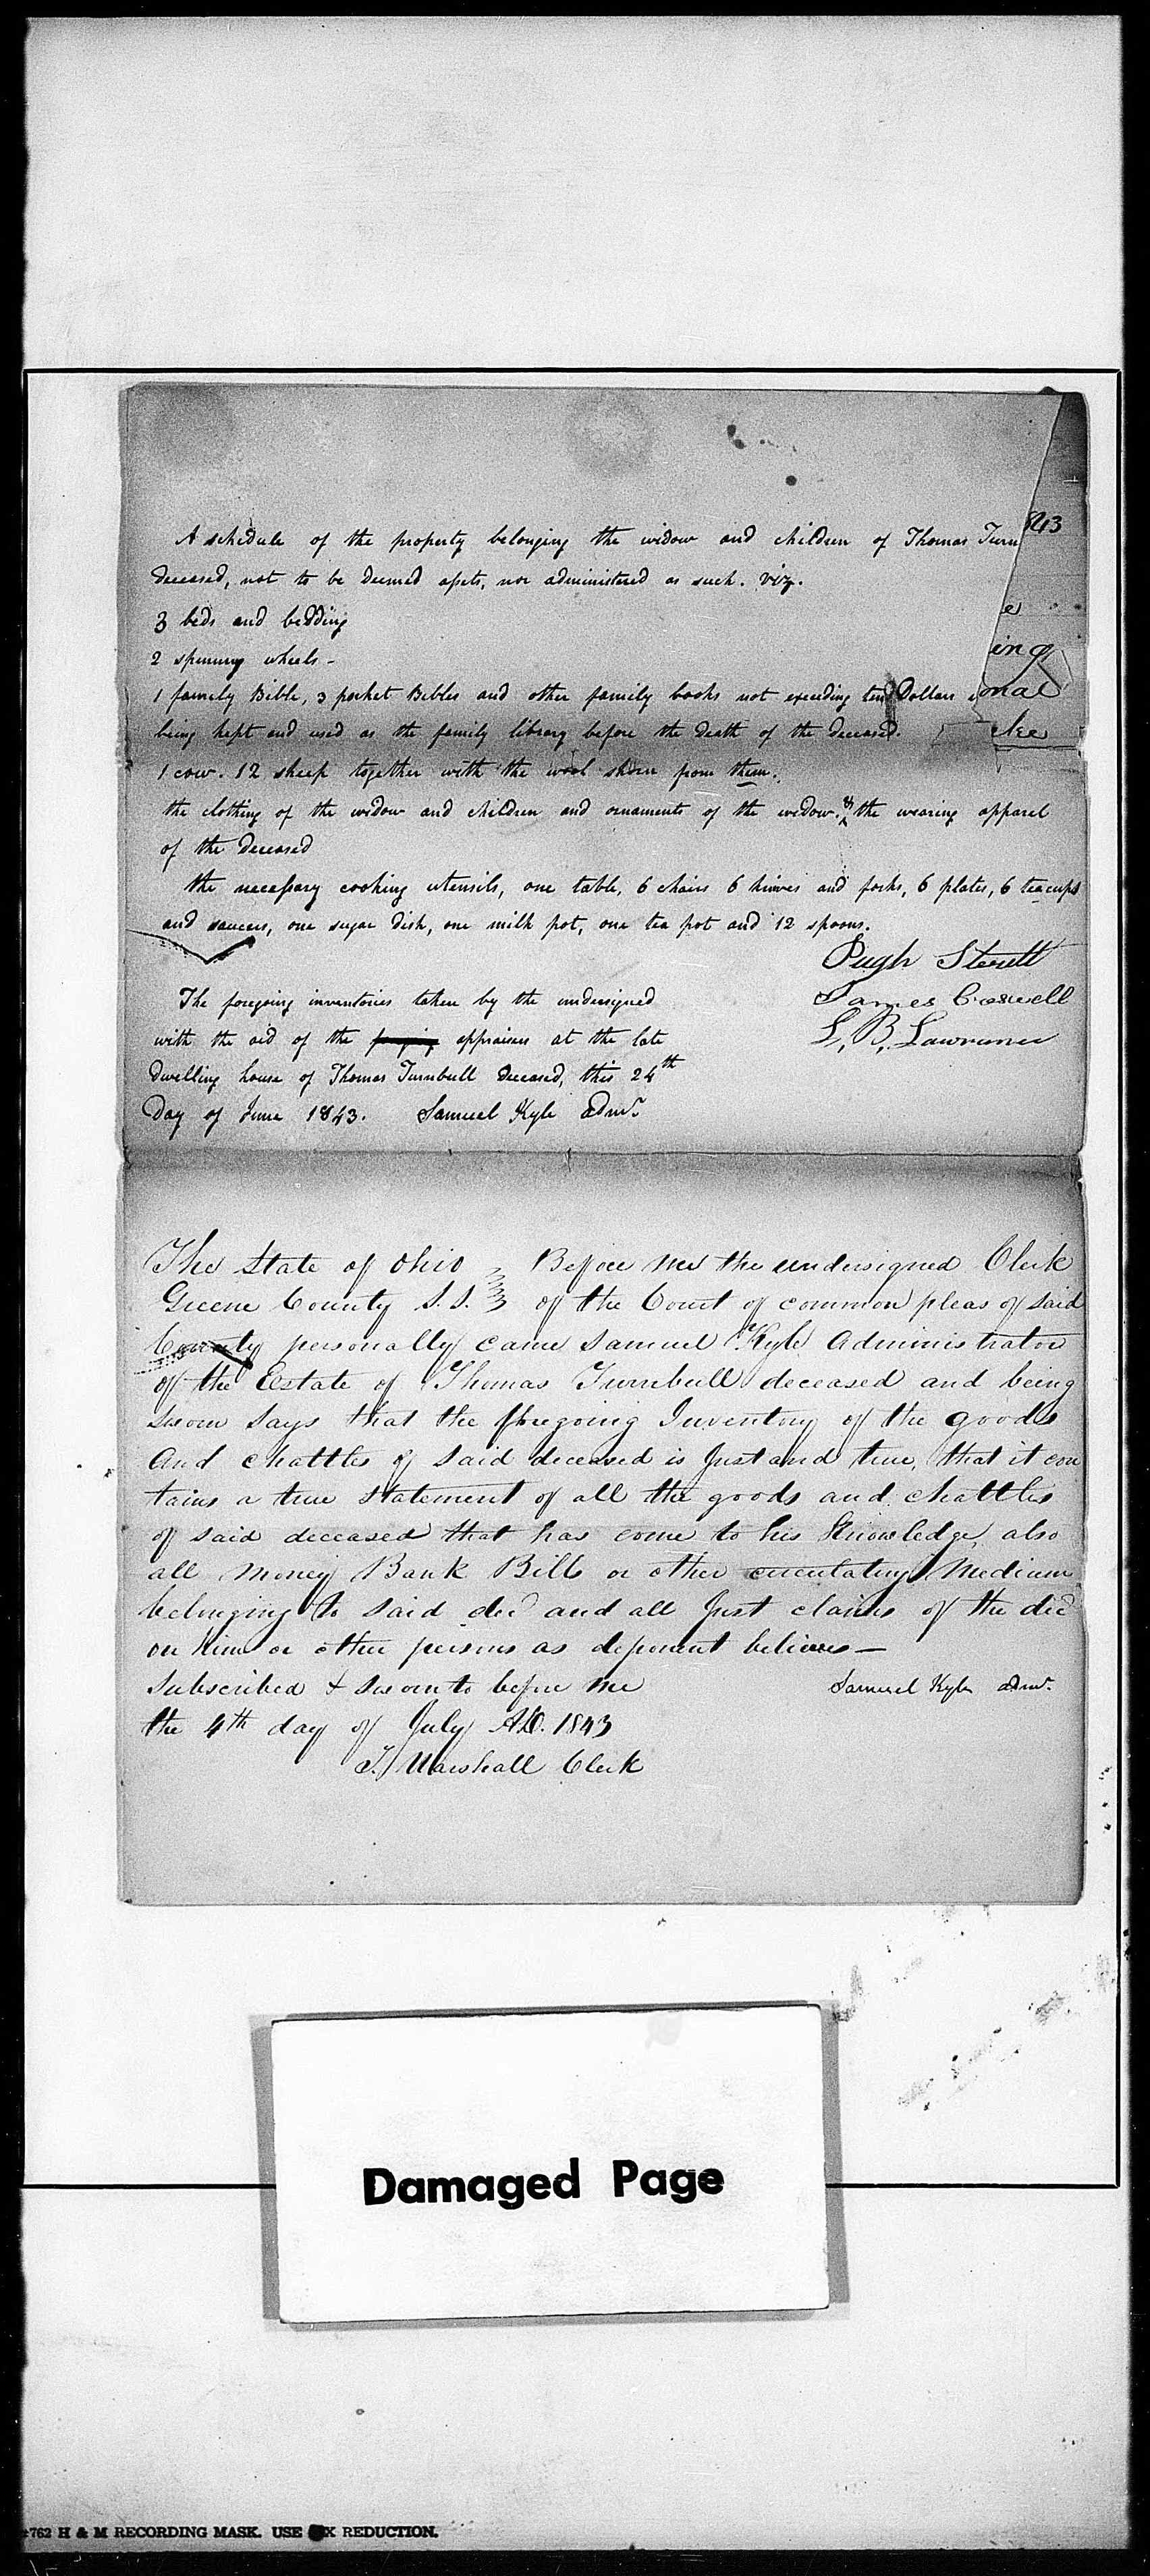 843
A schedule of the property belonging the widow and children of Thomas Turn
deceased, not to be deemed assets, nor administered as such. viz.
3 beds and bedding
e
2 spinning wheels -
ing
1 family Bible, 3 pocket Bibles and other family books not exceeding ten Dollars
onal
being kept and used as the family library before the death of the deceased.
1 cow. 12 sheep together with the wool shorn from them.
the clothing of the widow and children and ornaments of the widow. & the wearing apparel
of the deceased
the necessary cooking utensils, one table, 6 chairs 6 knives and forks, 6 plates, 6 teacups
and saucers, one sugar dish, one milk pot, one tea pot and 12 spoons.
Pugh Sterrett
James
L. B. Lawrence
The foregoing inventories taken by the undersigned
with the aid of the appraisers at the late
dwelling house of Thomas Turnbull deceased, this 24th
Day of June 1843. Samuel Kyle Admr.
The State of Ohio } Before me the undersigned Clerk
Greene County S.S. } of the Court of common pleas of said
County personally came Samuel Kyle Administrator
of the Estate of Thomas Turnbull deceased and being
sworn says that the foregoing Inventory of the goods
and chattles of said deceased is Just and true, that it con
tains a true statement of all the goods and chattles
of said deceased that has come to his Knowledge, also
all money Bank Bills or other circulating Medium
belonging to said decd and all Just claims of the decd
on him or other persons as deponent believes -
Subscribed & sworn to before me
Samuel Kyle admr.
the 4th day of July A.D. 1843
J. Marshall Clerk
Damaged Page
762 H & M RECORDING MASK. USE X REDUCTION.